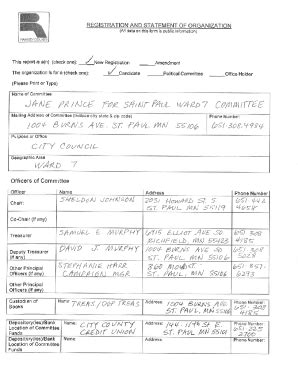 RAMSEY COUNTY
REGISTRATION AND STATEMENT OF ORGANIZATION
(All data on this form is public information)
This report is a(n) (check one): ✓ New Registration Amendment
The organization is for a (check one): ✓ Candidate Political Committee Office Holder
(Please Print or Type)
Name of Committee
JANE PRINCE FOR SAINT PAUL WARD 7 COMMITTEE
Mailing Address of Committee (include city, state & zip code) Phone Number
1004 BURNS AVE. ST. PAUL MN 55106
Purpose or Office
CITY COUNCIL
Geographic Area
WARD 7
Officers of Committee
Officer Name Address Phone Number
Chair: SHELDON JOHNSON HOWARD ST. S
ST. PAUL MN 55119
Co-Chair (if any)
Treasurer SAMUEL E MURPHY 6915 ELLIOT AVE SO
RICHFIELD, MN
Deputy Treasurer (if any) DAVID J. MURPHY 1004 BURNS AVE
ST. PAUL, MN 55106
Other Principal Officers (if any) STEPHANIE HARR
CAMPAIGN MGR
ST. PAUL, MN 55106
Other Principal Officers (if any)
Custodian of Books Name: TREAS/DEP TREAS Address: 1004 BURNS AVE
ST. PAUL, MN 55106 Phone Number
Depository(ies)/Bank Location of Committee Funds Name: CITY COUNTY
CREDIT UNION Address: 144 11TH ST E.
ST. PAUL, MN Phone Number
Depository(ies)/Bank Location of Committee Funds Name: Address: Phone Number